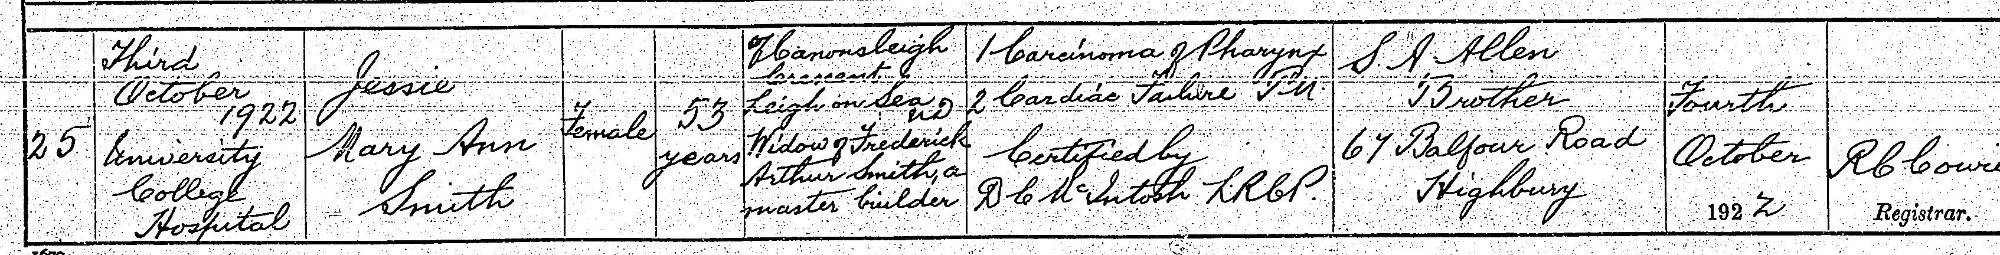 25
Third
October
1922
University
College
Hospital
Jessie
Mary Ann
Smith
Female
53
years
Of Canonsleigh
Crescent
Leigh on Sea
UD
Widow of Frederick
Arthur Smith, a
master builder
1 Carcinoma of Pharynx
2 Cardiac Failure P.M.
Certified by
D C McIntosh LRCP.
S A Allen
Brother
67 Balfour Road
Highbury
Fourth
October
1922
R C Cowie
Registrar.